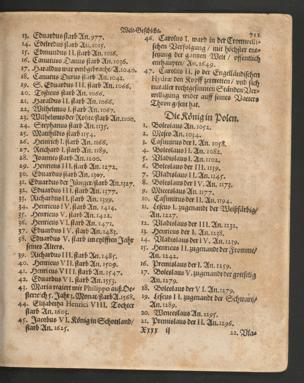 Welt-Geschicht.
711
13. Eduardus starb An. 977.
14. Edelredus starb An. 1015.
15. Edmundus II. starb An. 1016.
16. Canutus Danus starb An. 1036.
17. Haraldus
18. Canutus Durus starb An. 1042.
19. S. Eduardus III. starb An. 1066.
20. starb An. 1066.
21. Haraldus II. starb An. 1066.
22. Wilhelmus I. starb An. 1087.
23. Wilhelmus der Rothe starb An. 1100.
24. starb An. 1135.
25. Mathildis starb 1154.
26. Henrich I. starb An.
27. Reichard I. starb An. 1189.
28. Joannes starb An. 1200.
29. Henricus III. starb An. 1272.
30. Eduardus starb An. 1307.
31. Eduardus der Jünger starb An. 1327.
32. Eduardus III. starb An. 1377.
33. Richardus II. starb An. 1399.
34. Henricus IV. starb An. 1414.
35. Henricus V. starb An. 1422.
36. Henricus VI. starb An. 1471.
37. Eduardus IV. starb An. 1483.
38. Eduardus V. starb im eylfften Jahr
seines Alters.
39. Richardus III. starb An. 1485.
40. Henricus VII. starb An. 1509.
41. Henricus VIII. starb An. 1547.
42. Eduardus VI. starb An. 1553.
43. Maria regiert mit Philippo auß Oe-
sterreich 5. Jahr 1. Monat/ starb A. 1568.
44. Elizabetha Henrici VIII. Tochter
starb An. 1602.
45. Jacobus VI. König in Schottland/
starb An. 1625.
46. Carolus I. ward in der Cromwelli-
schen Verfolgung/ mit höchster
der gantzen Welt/ öffentlich
enthauptet/ An. 1649.
47. Carolus II. so der Engelländischen
Hydrae der Kopff zertretten/ und sich
mit aller rechtgesinnten Ständen Ver-
willigung wider auff seines Vatters
Thron gesetzt hat.
Die König in Polen.
1. Boleslaus An. 1052.
2. An. 1034.
3. Casimirus der I. An. 1058.
4. Boleslaus II. An. 1082.
5. Uladislaus I. An. 1102.
6. Boleslaus der III. An. 1139.
7. Uladislaus II. An. 1145.
8. Boleslaus der IV. An. 1173.
9. An. 1177.
10. Casimirus der II. An. 1194.
11. Lescus I. zugenandt der Weißfärbig/
An. 1227.
12. Uladislaus der III. An. 1231.
13. Henricus der I. An. 1238.
14. Uladislaus der IV. An. 1239.
15. Henricus II. zugenandt der Fromme/
An. 1241.
16. Premislaus der I. An. 1259.
17. Boleslaus V. zugenandt der gottselig
An. 1279.
18. Boleslaus der VI. An. 1279.
19. Lescus II. zugenandt der Schwartz/
An. 1289.
20. Wenceslaus An. 1295.
21. Premislaus der II. An. 1296.
Xxxx ij
22. Vla-